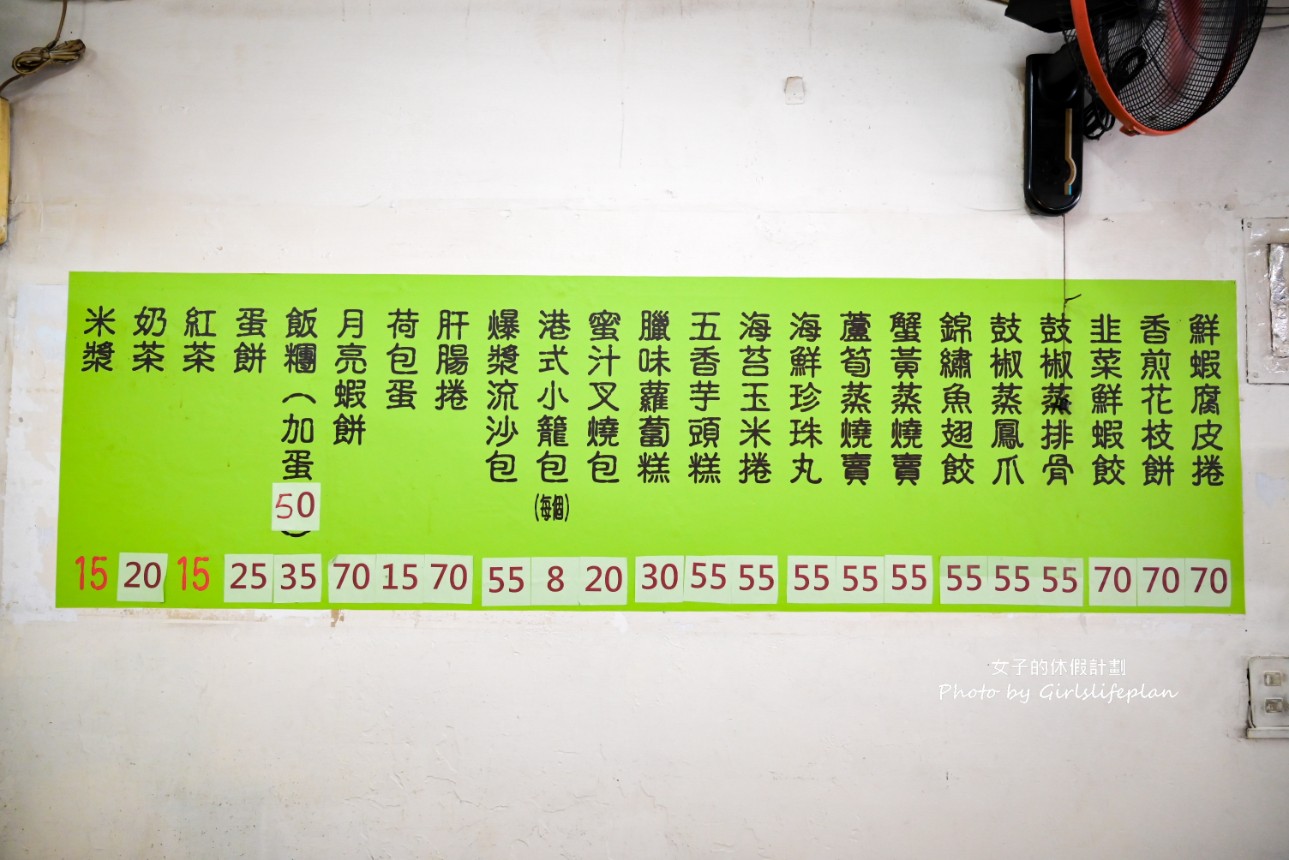 鮮蝦腐皮捲 70
香煎花枝餅 70
韭菜鮮蝦餃 70
鼓椒蒸排骨 55
鼓椒蒸鳳爪 55
錦繡魚翅餃 55
蟹黃蒸燒賣 55
蘆筍蒸燒賣 55
海鮮珍珠丸 55
海苔玉米捲 55
五香芋頭糕 55
臘味蘿蔔糕 30
蜜汁叉燒包 20
港式小籠包(每個) 8
爆漿流沙包 55
肝腸捲 70
荷包蛋 15
月亮蝦餅 70
飯糰(加蛋50) 35
蛋餅 25
紅茶 15
奶茶 20
米漿 15
女子的休假計劃
Photo by Girlslifeplan